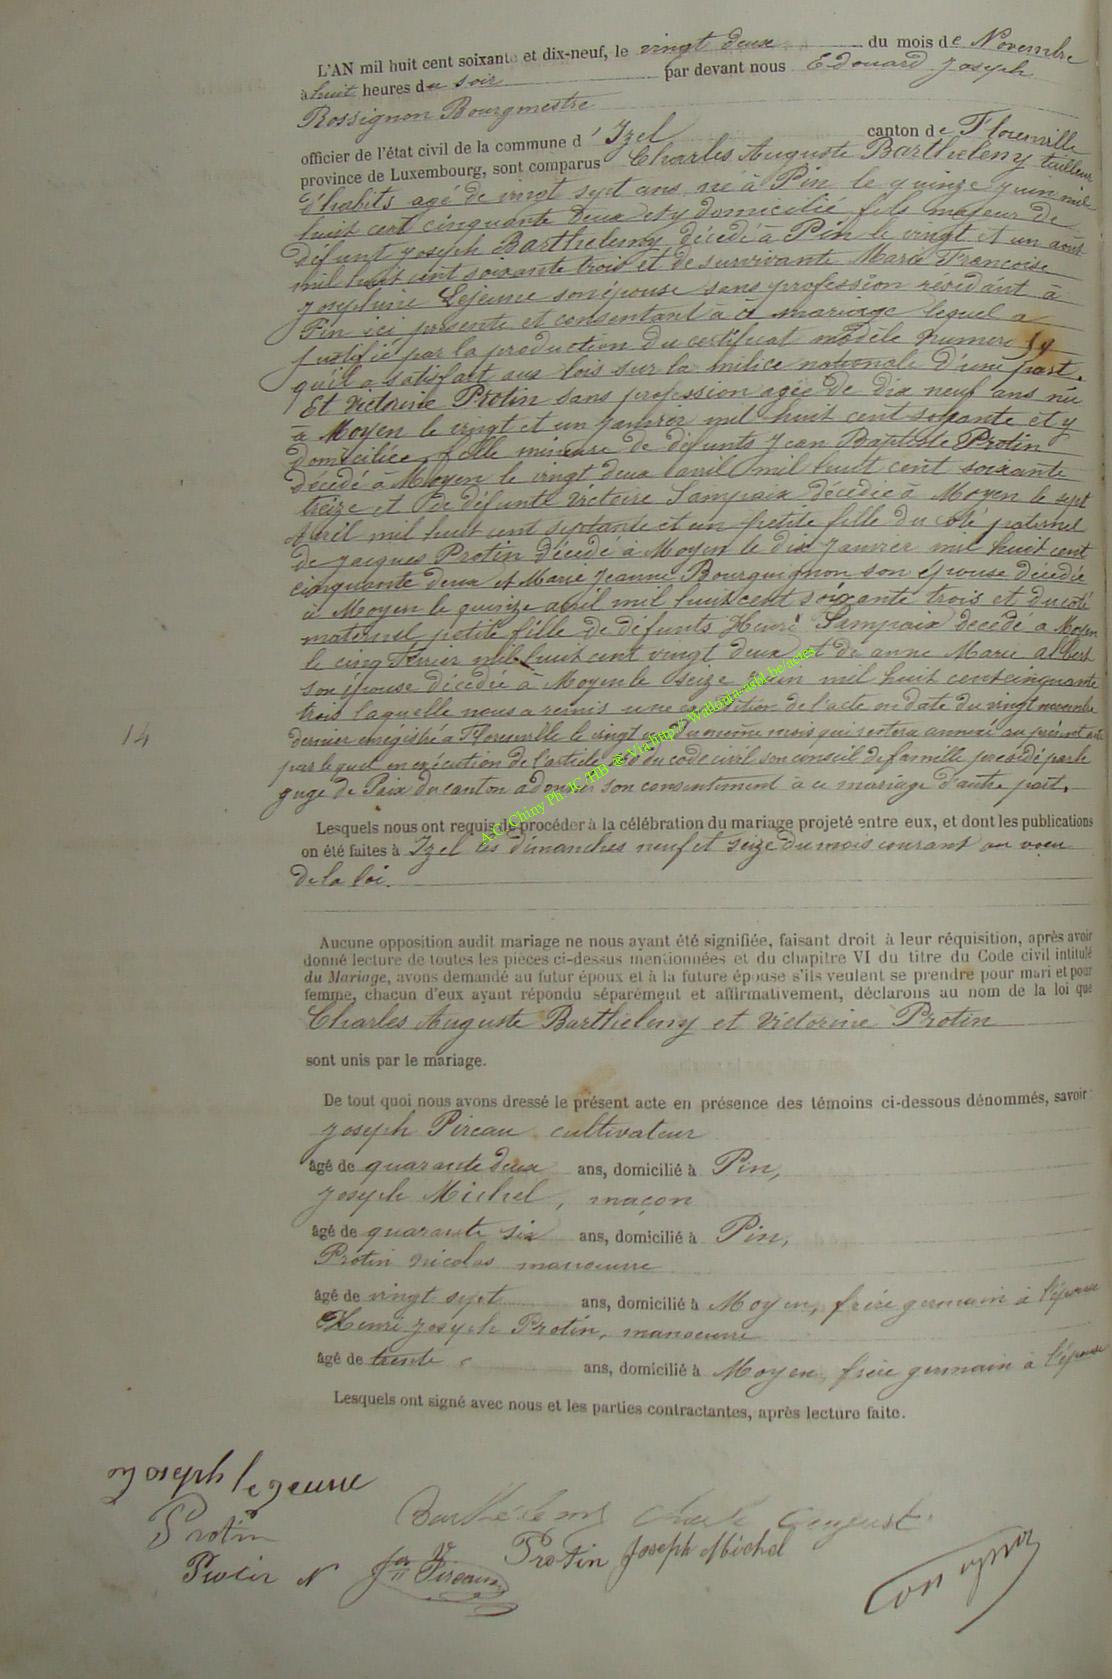 L'AN mil huit cent soixante et dix-neuf, le vingt deux du mois de Novembre
à huit heures du soir par devant nous Edouard Joseph
Rossignon Bourgmestre
officier de l'état civil de la commune d'Izel canton de Florenville
province de Luxembourg, sont comparus Charles Auguste Barthelemy tailleur
d'habits agé de vingt sept ans né à Pin le quinze juin mil
huit cent cinquante deux et y domicilié fils majeur de
défunt Joseph Barthelemy décédé à Pin le vingt et un août
mil huit cent soixante trois et de survivante Marie Françoise
Josephine Lejeune son épouse sans profession résidant à
Pin ici présente et consentant à ce mariage lequel a
justifié par la production du certificat modèle numero
qu'il a satisfait aux lois sur la milice nationale d'une part.
Et Victorine Protin sans profession agée de dix neuf ans née
à Moyen le vingt et un janvier mil huit cent soixante et y
domiciliée fille mineure de défunts Jean Baptiste Protin
décédé à Moyen le vingt deux avril mil huit cent soixante
treize et de défunte Victoire Sampaix décédée à Moyen le sept
Avril mil huit cent septante et un petite fille du coté paternel
de Jacques Protin décédé à Moyen le dix janvier mil huit cent
cinquante deux et Marie Jeanne Bourguignon son épouse décédée
à Moyen le quinze avril mil huit cent soixante trois et du coté
maternel petite fille de défunts Henri Sampaix décédé à Moyen
le cinq février mil huit cent vingt deux et de anne Marie albert
son épouse décédée à Moyen le seize juin mil huit cent cinquante
trois laquelle nous a remis une expédition de l'acte en date du vingt novembre
dernier enregistré à Florenville le vingt du même mois qui restera annexé au présent acte
par lequel en exécution de l'article du code civil son conseil de famille présidé par le
juge de Paix du canton a donné son consentement à ce mariage d'autre part.
14
A.C. Chiny Ph. JC/HB @ Via http://Wallonia-asbl.be/actes
Lesquels nous ont requis de procéder à la célébration du mariage projeté entre eux, et dont les publications
on été faites à Izel les dimanches neuf et seize du mois courant au vœu
de la loi.
Aucune opposition audit mariage ne nous ayant été signifiée, faisant droit à leur réquisition, après avoir
donné lecture de toutes les pièces ci-dessus mentionnées et du chapitre VI du titre du Code civil intitulé
du Mariage, avons demandé au futur époux et à la future épouse s'ils veulent se prendre pour mari et pour
femme, chacun d'eux ayant répondu séparément et affirmativement, déclarons au nom de la loi que
Charles Auguste Barthelemy et Victorine Protin
sont unis par le mariage.
De tout quoi nous avons dressé le présent acte en présence des témoins ci-dessous dénommés, savoir:
Joseph Pireau cultivateur
âgé de quarante deux ans, domicilié à Pin,
Joseph Michel, maçon
âgé de quarante six ans, domicilié à Pin,
Protin Nicolas manoeuvre
âgé de vingt sept ans, domicilié à Moyen, frère germain à l'épouse
Henri Joseph Protin, manoeuvre
âgé de trente ans, domicilié à Moyen, frère germain à l'épouse
Lesquels ont signé avec nous et les parties contractantes, après lecture faite.
Joseph lejeune
Protin
Barthélemy Charle August
Protin Joseph Michel
Protin N Pireau